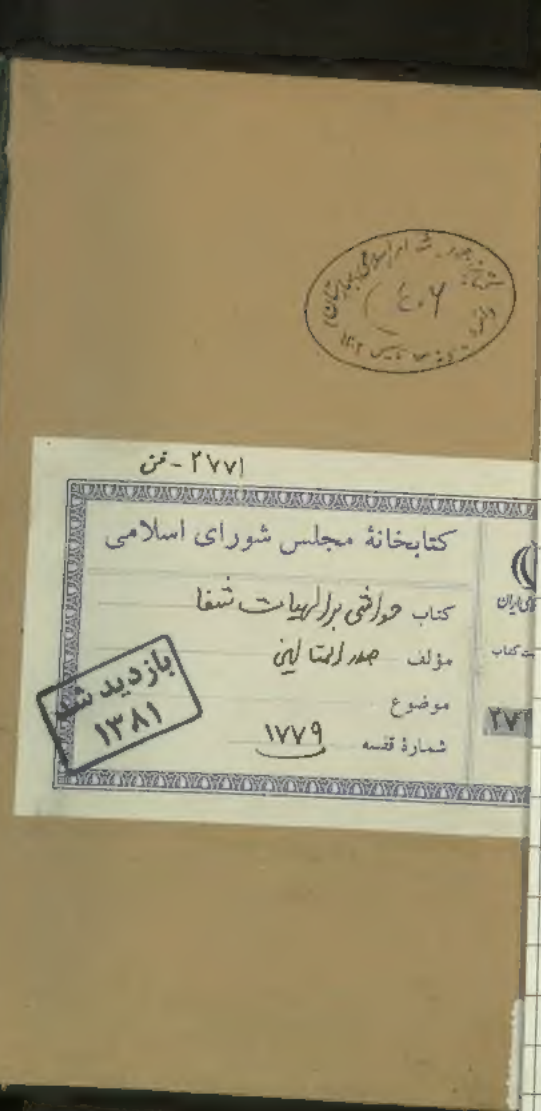 ۲۷۷۱ - فن
کتابخانهٔ مجلس شورای اسلامی
کتاب حواشی بر الهیات شفا
مؤلف صدر المتالهین
موضوع
شمارهٔ قفسه ۱۷۷۹
بازدید شد
۱۳۸۱
ایران
ت کتاب